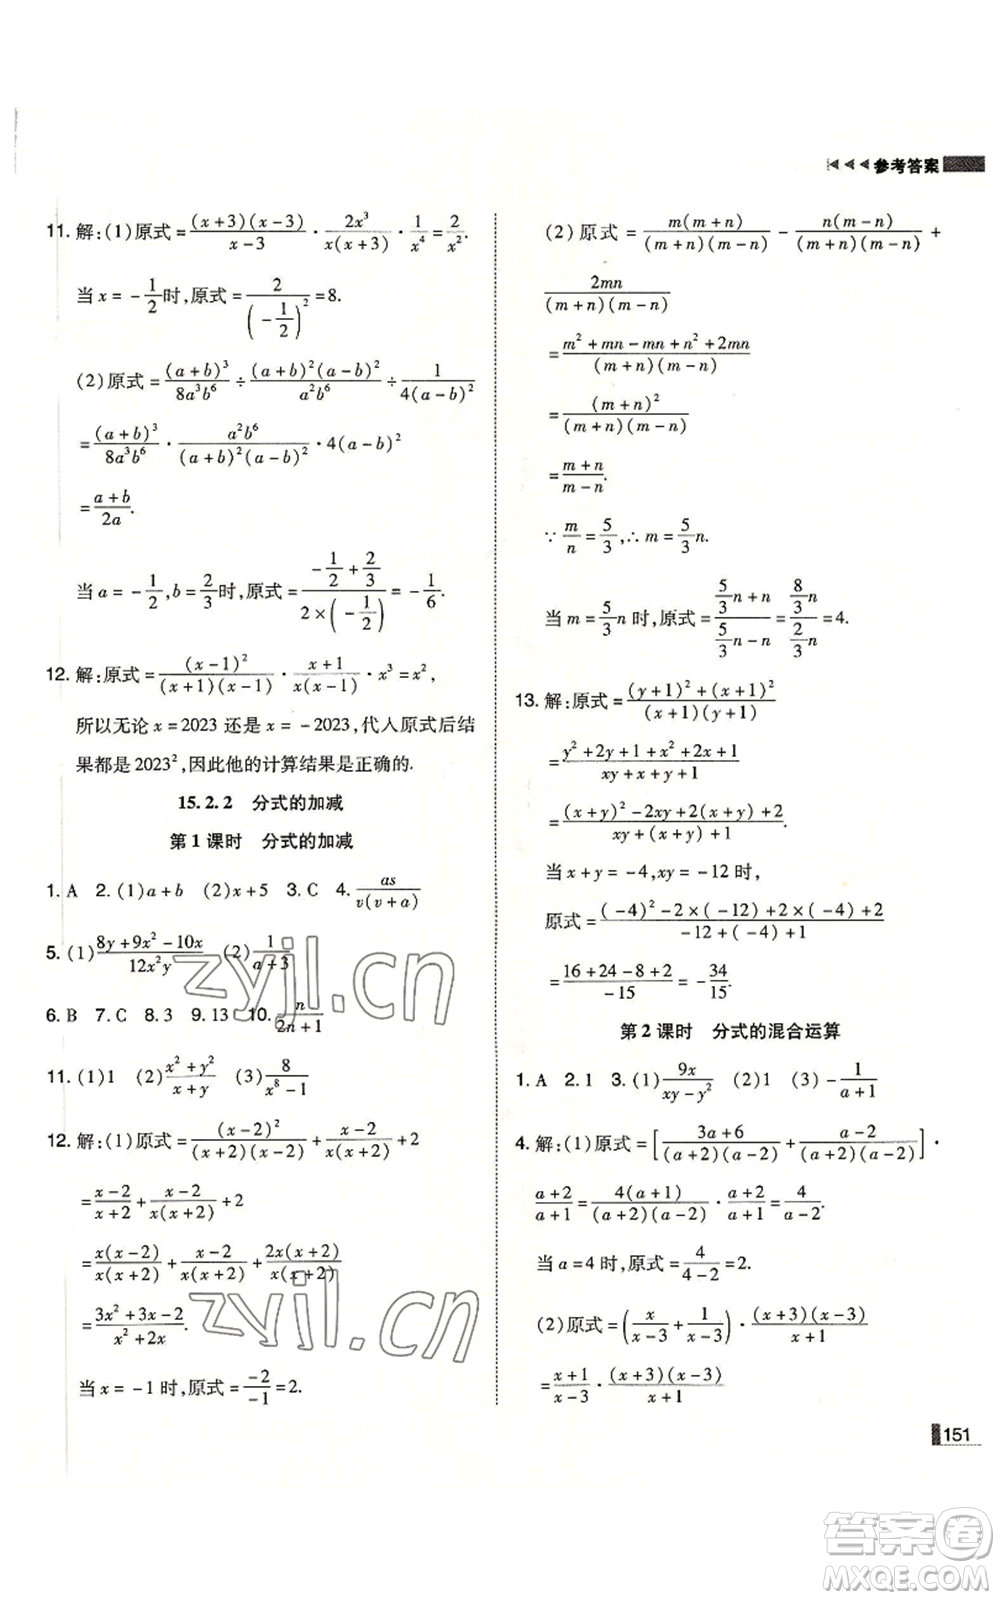 参考答案
11. 解:(1)原式=\frac{(x+3)(x-3)}{x-3}·\frac{2x^3}{x(x+3)}·\frac{1}{x^4}=\frac{2}{x^2}.
当x=-\frac{1}{2}时,原式=\frac{2}{(-\frac{1}{2})^2}=8.
(2)原式=\frac{(a+b)^3}{8a^3b^6}÷\frac{(a+b)^2(a-b)^2}{a^2b^6}÷\frac{1}{4(a-b)^2}
=\frac{(a+b)^3}{8a^3b^6}·\frac{a^2b^6}{(a+b)^2(a-b)^2}·4(a-b)^2
=\frac{a+b}{2a}.
当a=-\frac{1}{2},b=\frac{2}{3}时,原式=\frac{-\frac{1}{2}+\frac{2}{3}}{2×(-\frac{1}{2})}=-\frac{1}{6}.
12. 解:原式=\frac{(x-1)^2}{(x+1)(x-1)}·\frac{x+1}{x(x-1)}·x^3=x^2,
所以无论x=2023还是x=-2023,代人原式后结
果都是2023^2,因此他的计算结果是正确的.
15.2.2 分式的加减
第1课时 分式的加减
1. A 2. (1)a+b (2)x+5 3. C 4. \frac{as}{v(v+a)}
5. (1)\frac{8y+9x^2-10x}{12x^2y} (2)\frac{1}{a+3}
6. B 7. C 8. 3 9. 13 10. \frac{n}{2n+1}
11. (1)1 (2)\frac{x^2+y^2}{x+y} (3)\frac{8}{x^8-1}
12. 解:(1)原式=\frac{(x-2)^2}{(x+2)(x-2)}+\frac{x-2}{x(x+2)}+2
=\frac{x-2}{x+2}+\frac{x-2}{x(x+2)}+2
=\frac{x(x-2)}{x(x+2)}+\frac{x-2}{x(x+2)}+\frac{2x(x+2)}{x(x+2)}
=\frac{3x^2+3x-2}{x^2+2x}.
当x=-1时,原式=\frac{-2}{-1}=2.
(2)原式=\frac{m(m+n)}{(m+n)(m-n)}-\frac{n(m-n)}{(m+n)(m-n)}+
\frac{2mn}{(m+n)(m-n)}
=\frac{m^2+mn-mn+n^2+2mn}{(m+n)(m-n)}
=\frac{(m+n)^2}{(m+n)(m-n)}
=\frac{m+n}{m-n}.
∵\frac{m}{n}=\frac{5}{3},∴m=\frac{5}{3}n.
当m=\frac{5}{3}n时,原式=\frac{\frac{5}{3}n+n}{\frac{5}{3}n-n}=\frac{\frac{8}{3}n}{\frac{2}{3}n}=4.
13. 解:原式=\frac{(y+1)^2+(x+1)^2}{(x+1)(y+1)}
=\frac{y^2+2y+1+x^2+2x+1}{xy+x+y+1}
=\frac{(x+y)^2-2xy+2(x+y)+2}{xy+(x+y)+1}.
当x+y=-4,xy=-12时,
原式=\frac{(-4)^2-2×(-12)+2×(-4)+2}{-12+(-4)+1}
=\frac{16+24-8+2}{-15}=-\frac{34}{15}.
第2课时 分式的混合运算
1. A 2. 1 3. (1)\frac{9x}{xy-y^2} (2)1 (3)-\frac{1}{a+1}
4. 解:(1)原式=[\frac{3a+6}{(a+2)(a-2)}+\frac{a-2}{(a+2)(a-2)}]·
\frac{a+2}{a+1}=\frac{4(a+1)}{(a+2)(a-2)}·\frac{a+2}{a+1}=\frac{4}{a-2}.
当a=4时,原式=\frac{4}{4-2}=2.
(2)原式=(\frac{x}{x-3}+\frac{1}{x-3})·\frac{(x+3)(x-3)}{x+1}
=\frac{x+1}{x-3}·\frac{(x+3)(x-3)}{x+1}
151
zyjl.cn
zyjl.cn
答案卷
MXQE.COM